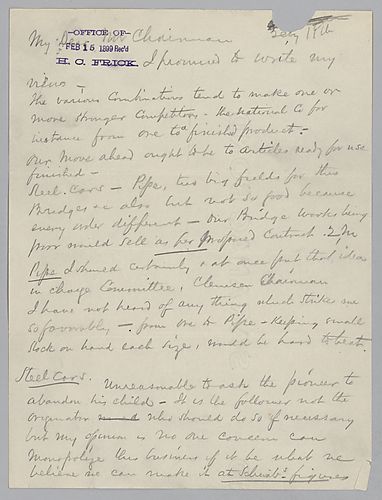 -OFFICE OF-
FEB 15 1899 Rec'd
H. C. FRICK.
My Dear Mr Chairman
I promised to write my
views -
The various Combinations tend to make one or
more stronger Competitors - the National Co for
instance from ore to finished product -
Our move ahead ought to be to articles ready for use
finished -
Steel Cars - Pipe, two big fields for this
Bridges &c also but not so good because
every order different - Our Bridge works being
poor would sell as per proposed Contract -
Pipe I should certainly & at once put that idea
in charge Committee, Clemson Chairman
I have not heard of any thing which strikes me
so favorably - from ore to Pipe - Keeping small
stock on hand each size, would be hard to beat.
Steel Cars. Unreasonable to ask the pioneer to
abandon his child - It is the follower not the
originator who should do so if necessary
but my opinion is no one concern can
Monopolize this business if it be what we
believe we can make it at Schwab's figures